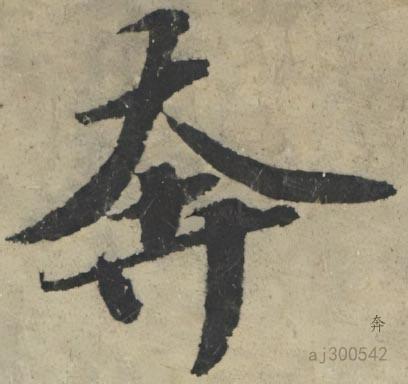 奔
奔
aj300542